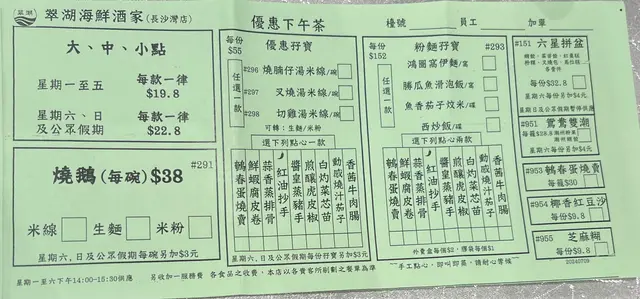 翠湖海鮮酒家(長沙灣店)
優惠下午茶
檯號 員工 加單
大、中、小點
星期一至五 每款一律 $19.8
星期六、日及公眾假期 每款一律 $22.8
燒鵝(每碗)$38 #291
米線 生麵 米粉
星期六、日及公眾假期每碗另加$3元
每份$55
優惠孖寶
任選一款
#296 燒腩仔湯米線/碗
#297 叉燒湯米線/碗
#298 切雞湯米線/碗
可轉:生麵/米粉
選下列點心一款
香茜牛肉腸
動感燒汁茄子
白灼菜芯苗
煎釀虎皮椒
醬皇蒸豬手
紅油抄手
蒜香蒸排骨
鮮蝦腐皮卷
鵪春蛋燒賣
星期六、日及公眾假期每份孖寶另加$3元
每份$152
粉麵孖寶 #293
任選一款
鴻圖窩伊麵/窩
勝瓜魚滑泡飯/窩
魚香茄子炆米/碟
西炒飯/碟
選下列點心兩款
香茜牛肉腸
動感燒汁茄子
白灼菜芯苗
煎釀虎皮椒
醬皇蒸豬手
紅油抄手
蒜香蒸排骨
鮮蝦腐皮卷
鵪春蛋燒賣
外賣盒每個$2,膠袋每個$1
手工點心,即叫即蒸,請耐心等候
#151 六星拼盆
每份$32.8
星期六每份另加$4元
星期日及公眾假期暫停供應
#951 鴛鴦雙潮
星期六每份另加$4元
#953 鵪春蛋燒賣
每籠$30
#954 椰香紅豆沙
每份$9.8
#955 芝麻糊
每份$9.8
20240709
星期一至六下午14:00-15:30供應 另收加一服務費 各食品之收費,本店以各賓客所劃之餐單為準